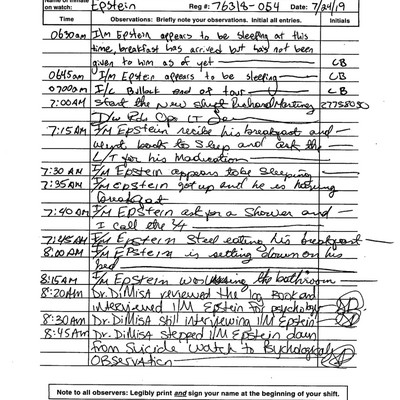 Name of Inmate
on watch: Epstein Reg #: 76318-054 Date: 7/24/19
Time Observations: Briefly note your observations. Initial all entries. Initials
0630am I/m Epstein appears to be sleeping at this
time, breakfast has arrived but has not been
given to him as of yet CB
0645am I/m Epstein appears to be sleeping CB
0700am I/C Bullock end of tour CB
7:00AM Start the New shift Richard
I/w Ops LT
7:15AM I/M Epstein recibe his breakfast and
went back to Sleep and ask the
L/T for his Maducation
7:30 AM I/M Epstein appears to be Sleeping
7:35AM I/M Epstein got up and he is having
breakfast
7:40AM I/M Epstein ask for a Shower and
I call the 3/4
7:45AM I/M Epstein Steel eating his breakfast
8:00AM I/M Epstein is setting down on his
bed
8:15AM I/M Epstein was the bathroom
8:20AM Dr. DiMisa reviewed the log Book and
interviewed I/M Epstein for psychology
8:30AM Dr. DiMisa still interviewing I/M Epstein
8:45AM Dr. DiMisa stepped I/M Epstein down
from Suicide Watch to Psychological
OBServation
Note to all observers: Legibly print and sign your name at the beginning of your shift.